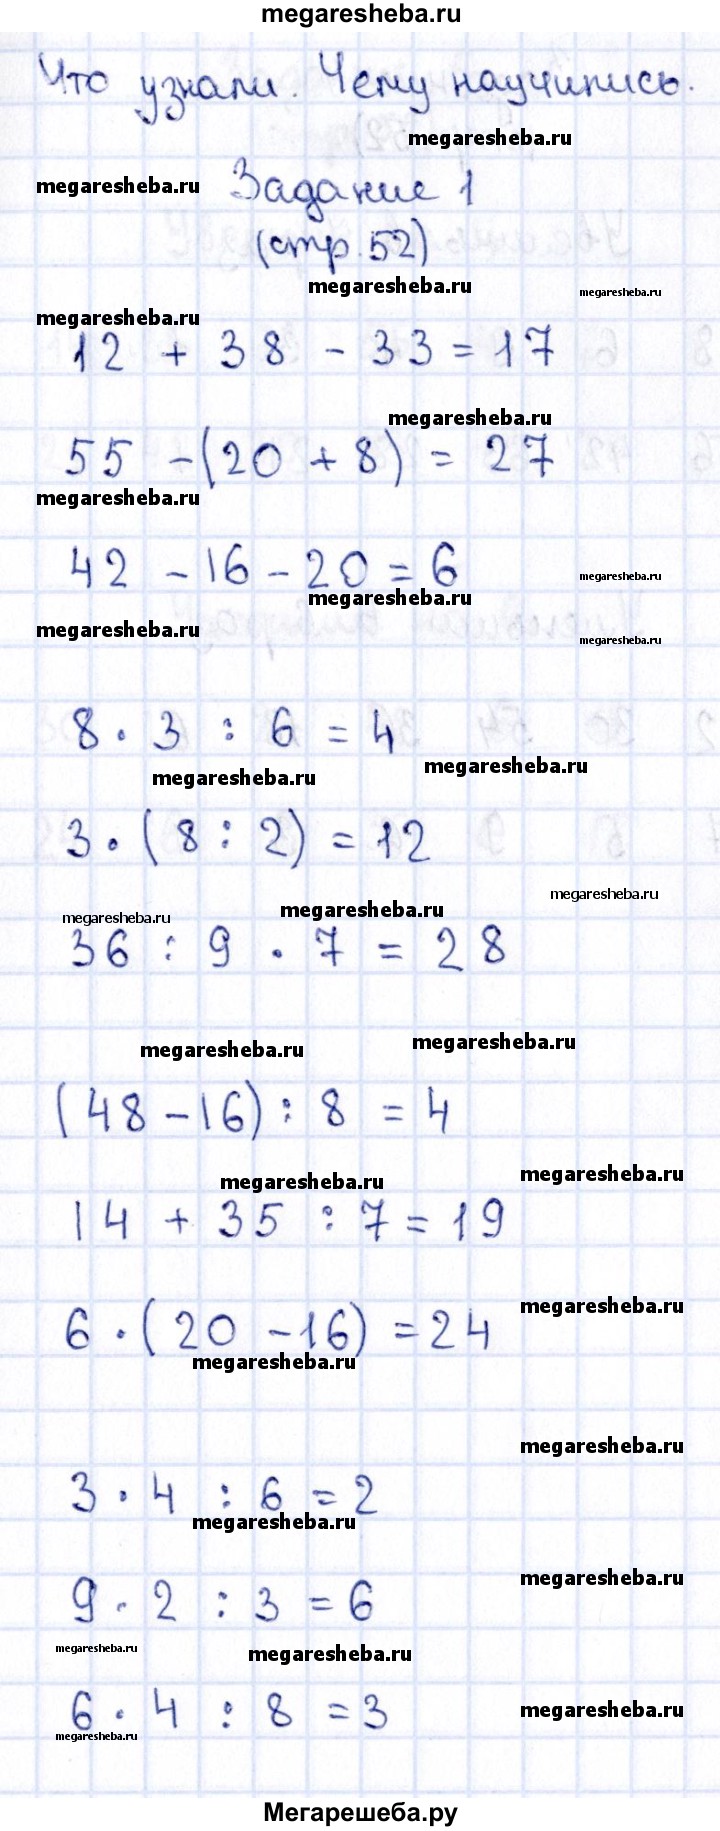 megaresheba.ru
Что узнали. Чему научились.
megaresheba.ru
megaresheba.ru
Задание 1
(стр. 52)
megaresheba.ru
megaresheba.ru
megaresheba.ru
12 + 38 - 33 = 17
megaresheba.ru
55 - (20 + 8) = 27
megaresheba.ru
42 - 16 - 20 = 6
megaresheba.ru
megaresheba.ru
megaresheba.ru
megaresheba.ru
8 · 3 : 6 = 4
megaresheba.ru
megaresheba.ru
3 · (8 : 2) = 12
megaresheba.ru
megaresheba.ru
megaresheba.ru
36 : 9 · 7 = 28
megaresheba.ru
megaresheba.ru
(48 - 16) : 8 = 4
megaresheba.ru
megaresheba.ru
14 + 35 : 7 = 19
megaresheba.ru
6 · (20 - 16) = 24
megaresheba.ru
megaresheba.ru
3 · 4 : 6 = 2
megaresheba.ru
megaresheba.ru
9 · 2 : 3 = 6
megaresheba.ru
megaresheba.ru
6 · 4 : 8 = 3
megaresheba.ru
megaresheba.ru
Мегарешеба.ру